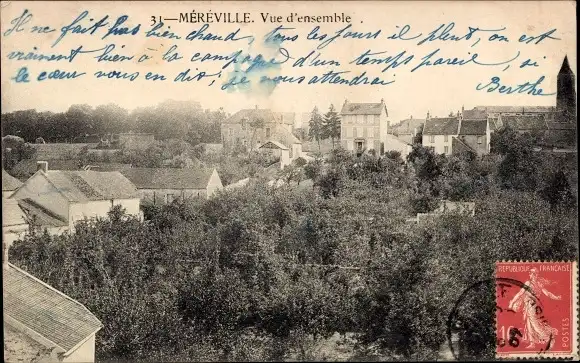 31 — MÉRÉVILLE. Vue d'ensemble
Il ne fait pas bien chaud, tous les jours il pleut, on est
vraiment bien à la campagne d'un temps pareil, si
le cœur vous en dit, je vous attendrai
Berthe
REPUBLIQUE FRANÇAISE
10
POSTES